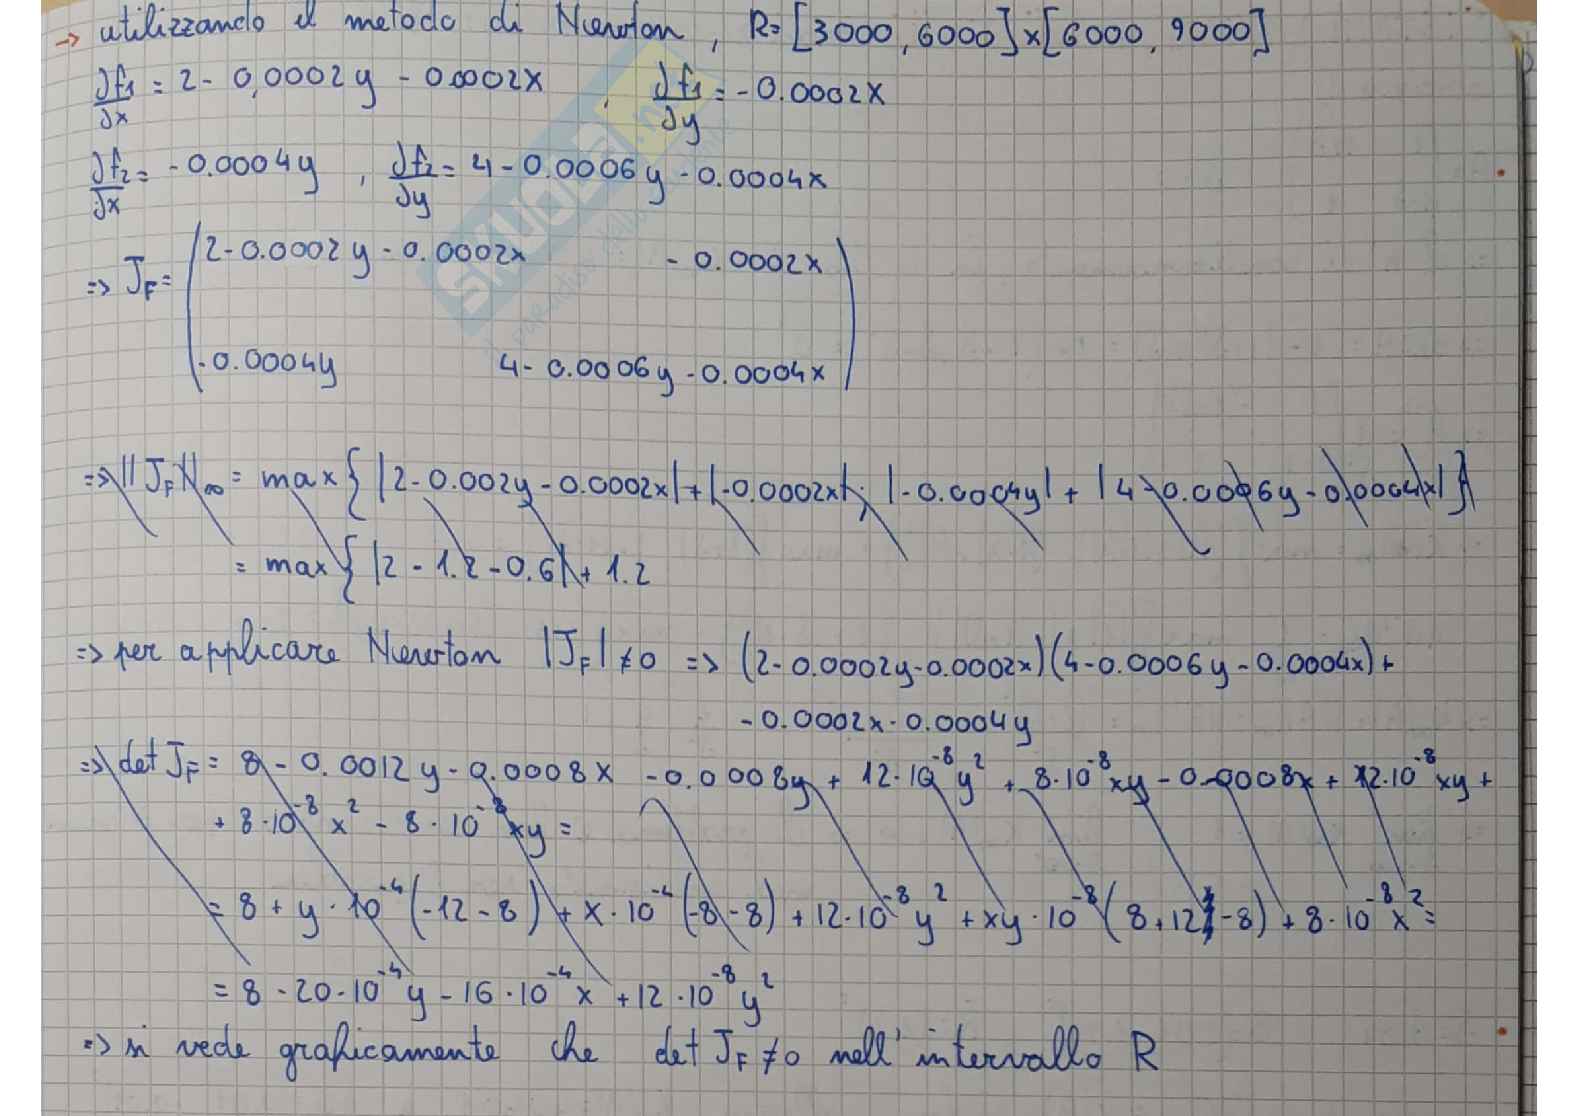 → utilizzando il metodo di Newton, R=[3000,6000]×[6000,9000]
∂f₁/∂x = 2-0,0002y-0.0002x , ∂f₁/∂y = -0.0002x
∂f₂/∂x = -0.0004y , ∂f₂/∂y = 4-0.0006y-0.0004x
=> J_F = (2-0.0002y-0.0002x   -0.0002x
-0.0004y   4-0.0006y-0.0004x)
=> ||J_F||∞ = max{|2-0.002y-0.0002x|+|-0.0002x|; |-0.0004y|+|4-0.0006y-0.0004x|}
= max{|2-1.2-0.6|+1.2
=> per applicare Newton |J_F|≠0 => (2-0.0002y-0.0002x)(4-0.0006y-0.0004x)+
-0.0002x·0.0004y
=> det J_F = 8-0.0012y-0.0008x-0.0008y+12·10⁻⁸y²+8·10⁻⁸xy-0.0008x+12·10⁻⁸xy+
+8·10⁻⁸x²-8·10⁻⁸xy=
=8+y·10⁻⁴(-12-8)+x·10⁻⁴(-8-8)+12·10⁻⁸y²+xy·10⁻⁸(8+12-8)+8·10⁻⁸x²=
=8-20·10⁻⁴y-16·10⁻⁴x+12·10⁻⁸y²
=> si vede graficamente che det J_F≠0 nell'intervallo R
SKUOLA.net